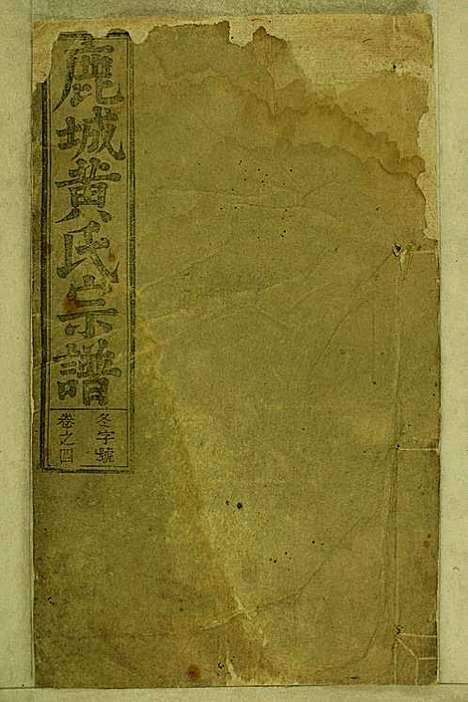 鹿城黄氏宗譜
冬字號
卷之四